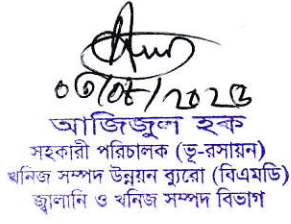 আজিজুল হক
সহকারী পরিচালক (ভূ-রসায়ন)
খনিজ সম্পদ উন্নয়ন ব্যুরো (বিএমডি)
জ্বালানি ও খনিজ সম্পদ বিভাগ